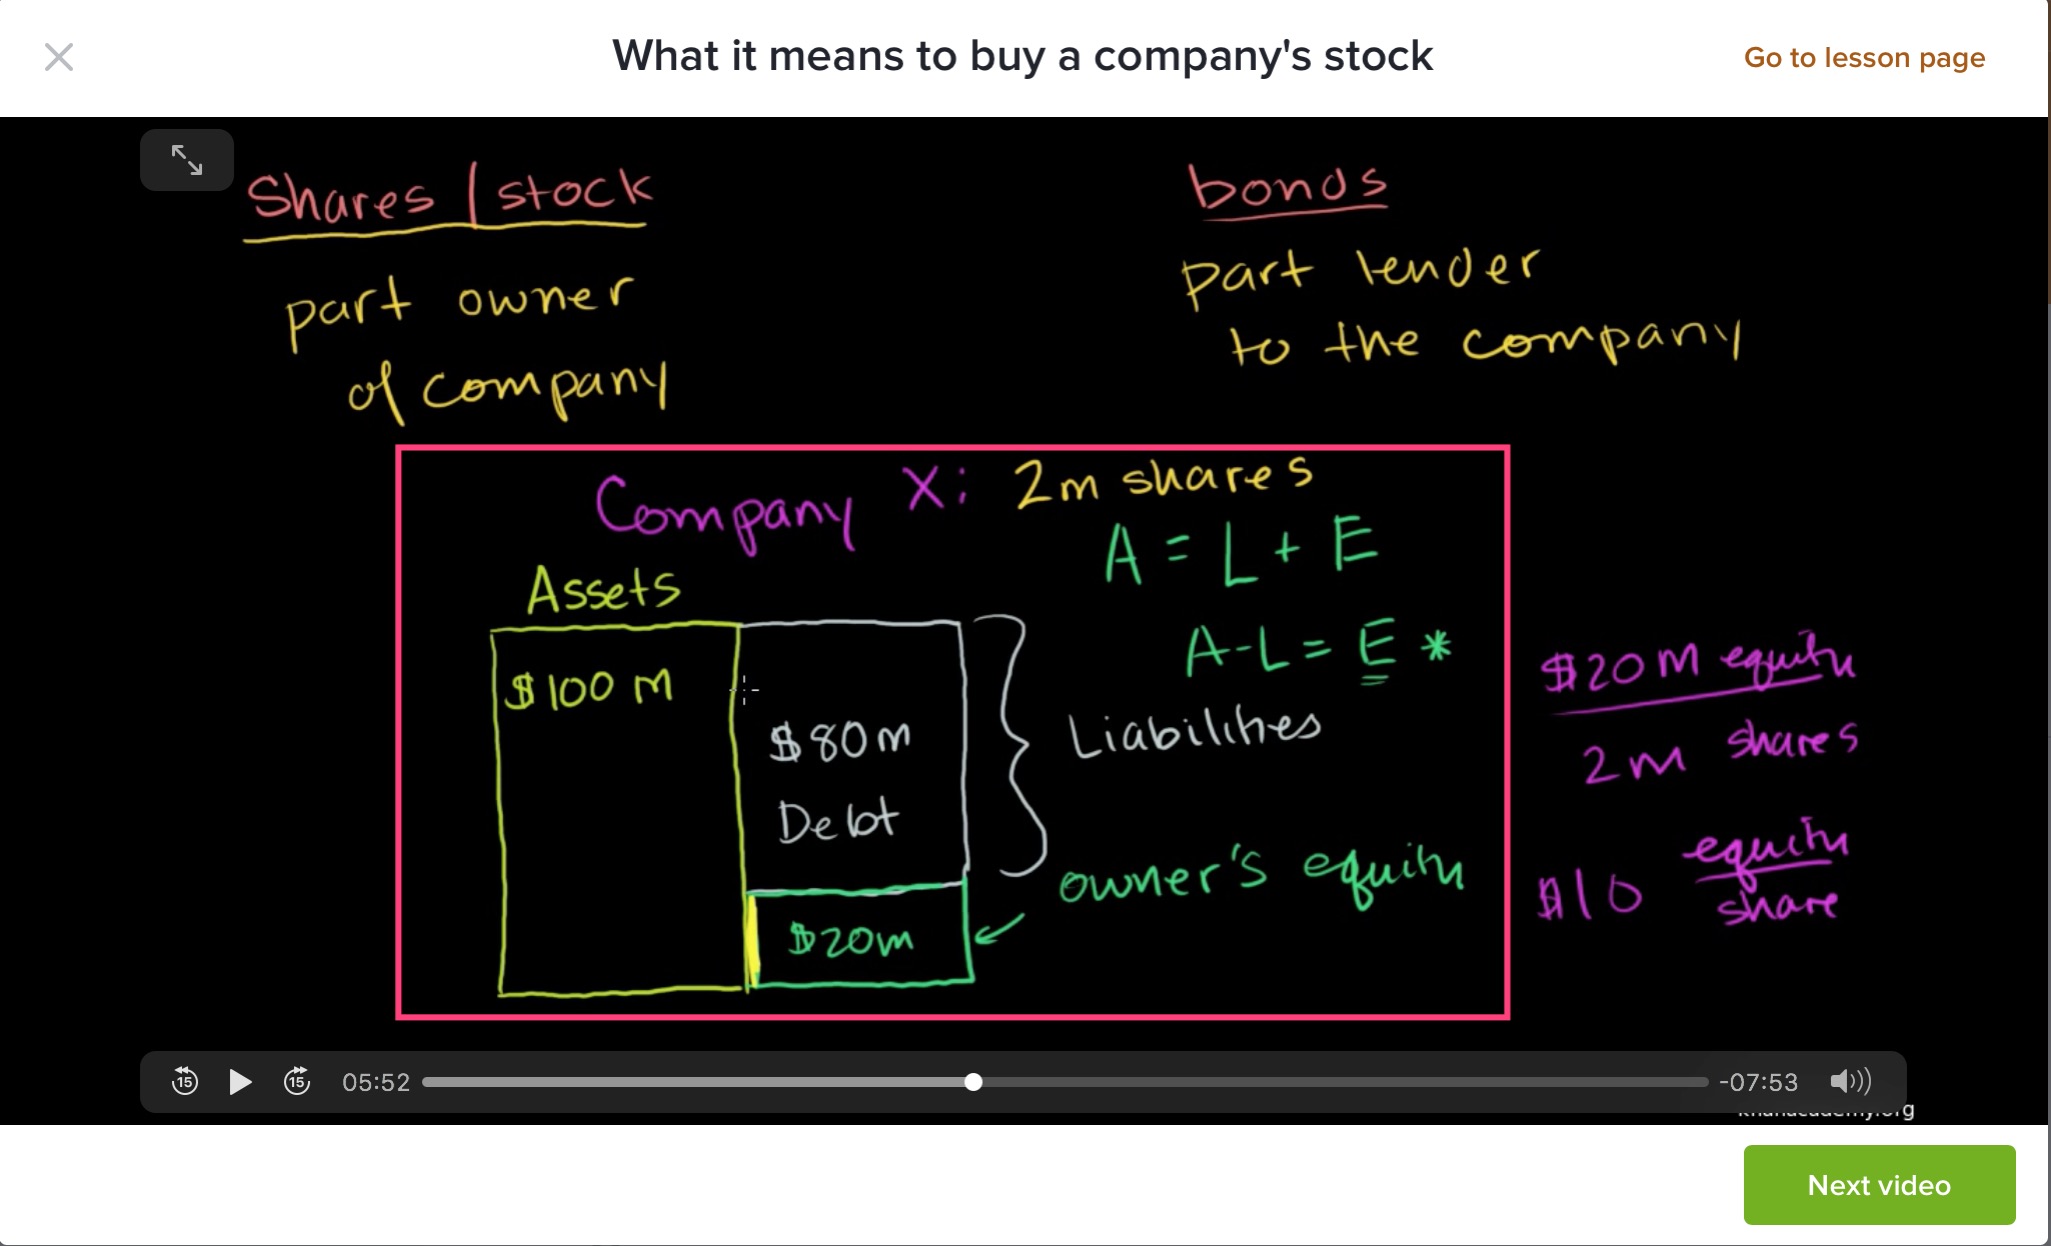 What it means to buy a company's stock
Go to lesson page
Shares / stock
part owner
of company
bonds
part lender
to the company
Company X: 2m shares
A = L + E
A - L = E *
Assets
$100 M
$80m
Debt
Liabilities
owner's equity
$20m
$20M equity
2m shares
$10 equity
share
15
15
05:52
-07:53
khanacademy.org
Next video